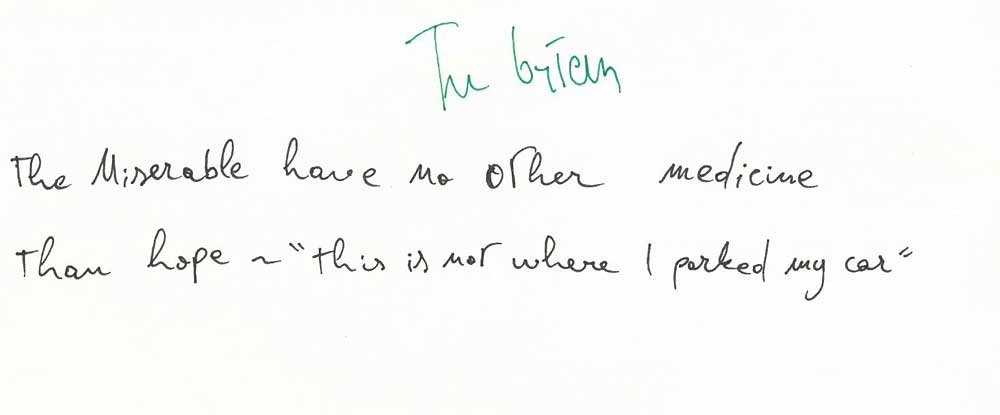 The Miserable have no other medicine
than hope ~ "this is not where I parked my car"